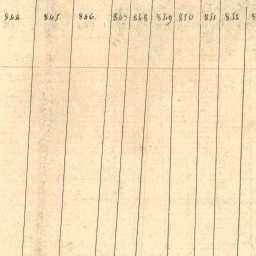 844 845 846 847 848 849 850 851 852 8